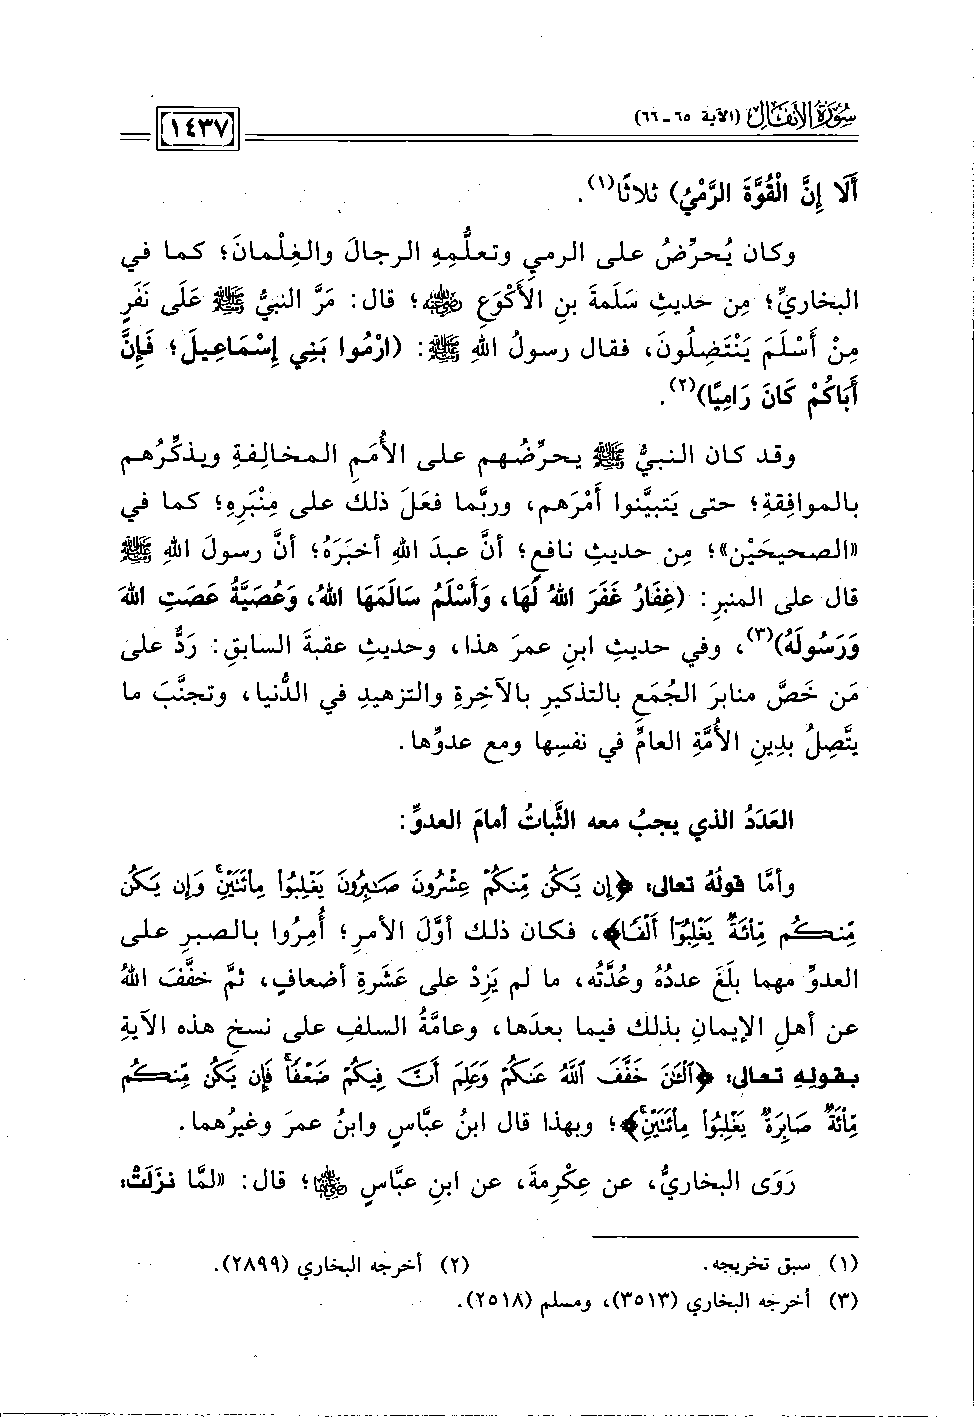 سُورَةُ الأَنفَالِ (الآية ٦٥ـ٦٦)
١٤٣٧
أَلَا إِنَّ الْقُوَّةَ الرَّمْيُ) ثلاثًا(١).
وكان يُحرِّضُ على الرميِ وتعلُّمِهِ الرجالَ والغِلْمانَ؛ كما في
البخاريِّ؛ مِن حديثِ سَلَمةَ بنِ الأَكْوَعِ ﵁؛ قال: مَرَّ النبيُّ ﷺ عَلَى نَفَرٍ
مِنْ أَسْلَمَ يَنْتَضِلُونَ، فقال رسولُ اللهِ ﷺ: (ارْمُوا بَنِي إِسْمَاعِيلَ؛ فَإِنَّ
أَبَاكُمْ كَانَ رَامِيًا)(٢).
وقد كان النبيُّ ﷺ يحرِّضُهم على الأُمَمِ المخالِفةِ ويذكِّرُهم
بالموافِقةِ؛ حتى يَتبيَّنوا أَمْرَهم، وربَّما فعَلَ ذلك على مِنْبَرِهِ؛ كما في
«الصحيحَيْن»؛ مِن حديثِ نافعٍ؛ أنَّ عبدَ اللهِ أخبَرَهُ؛ أنَّ رسولَ اللهِ ﷺ
قال على المنبرِ: (غِفَارُ غَفَرَ اللهُ لَهَا، وَأَسْلَمُ سَالَمَهَا اللهُ، وَعُصَيَّةُ عَصَتِ اللهَ
وَرَسُولَهُ)(٣)، وفي حديثِ ابنِ عمرَ هذا، وحديثِ عقبةَ السابقِ: رَدٌّ على
مَن خَصَّ منابرَ الجُمَعِ بالتذكيرِ بالآخِرةِ والتزهيدِ في الدُّنيا، وتجنَّبَ ما
يتَّصِلُ بدِينِ الأُمَّةِ العامِّ في نفسِها ومع عدوِّها.
العَدَدُ الذي يجبُ معه الثَّباتُ أمامَ العدوِّ:
وأمَّا قولُهُ تعالى: ﴿إِن يَكُن مِّنكُمْ عِشْرُونَ صَٰبِرُونَ يَغْلِبُوا۟ مِا۟ئَتَيْنِ ۚ وَإِن يَكُن
مِّنكُم مِّا۟ئَةٌ يَغْلِبُوٓا۟ أَلْفًا﴾، فكان ذلك أوَّلَ الأمرِ؛ أُمِرُوا بالصبرِ على
العدوِّ مهما بلَغَ عددُهُ وعُدَّتُه، ما لم يَزِدْ على عَشَرةِ أضعافٍ، ثمَّ خفَّفَ اللهُ
عن أهلِ الإيمانِ بذلك فيما بعدَها، وعامَّةُ السلفِ على نسخِ هذه الآيةِ
بقولِهِ تعالى: ﴿ٱلْـَٰٔنَ خَفَّفَ ٱللَّهُ عَنكُمْ وَعَلِمَ أَنَّ فِيكُمْ ضَعْفًا ۚ فَإِن يَكُن مِّنكُم
مِّا۟ئَةٌ صَابِرَةٌ يَغْلِبُوا۟ مِا۟ئَتَيْنِ ۚ﴾؛ وبهذا قال ابنُ عبَّاسٍ وابنُ عمرَ وغيرُهما.
رَوَى البخاريُّ، عن عِكْرِمةَ، عن ابنِ عبَّاسٍ ﵄؛ قال: «لمَّا نزَلَتْ:
(١) سبق تخريجه. (٢) أخرجه البخاري (٢٨٩٩).
(٣) أخرجه البخاري (٣٥١٣)، ومسلم (٢٥١٨).